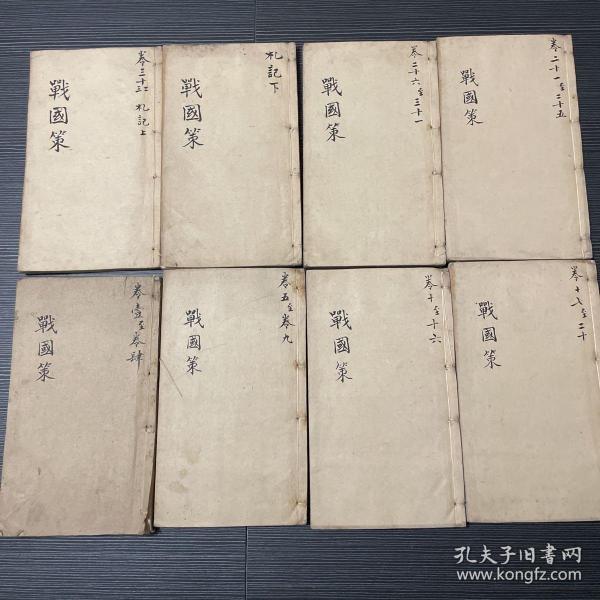 戰國策
札記上
戰國策
札記下
戰國策
卷二十六至三十一
戰國策
卷二十一至二十五
戰國策
卷壹至卷肆
戰國策
卷五至卷九
戰國策
卷十至十六
戰國策
卷十七至二十
孔夫子旧书网
www.kongfz.com